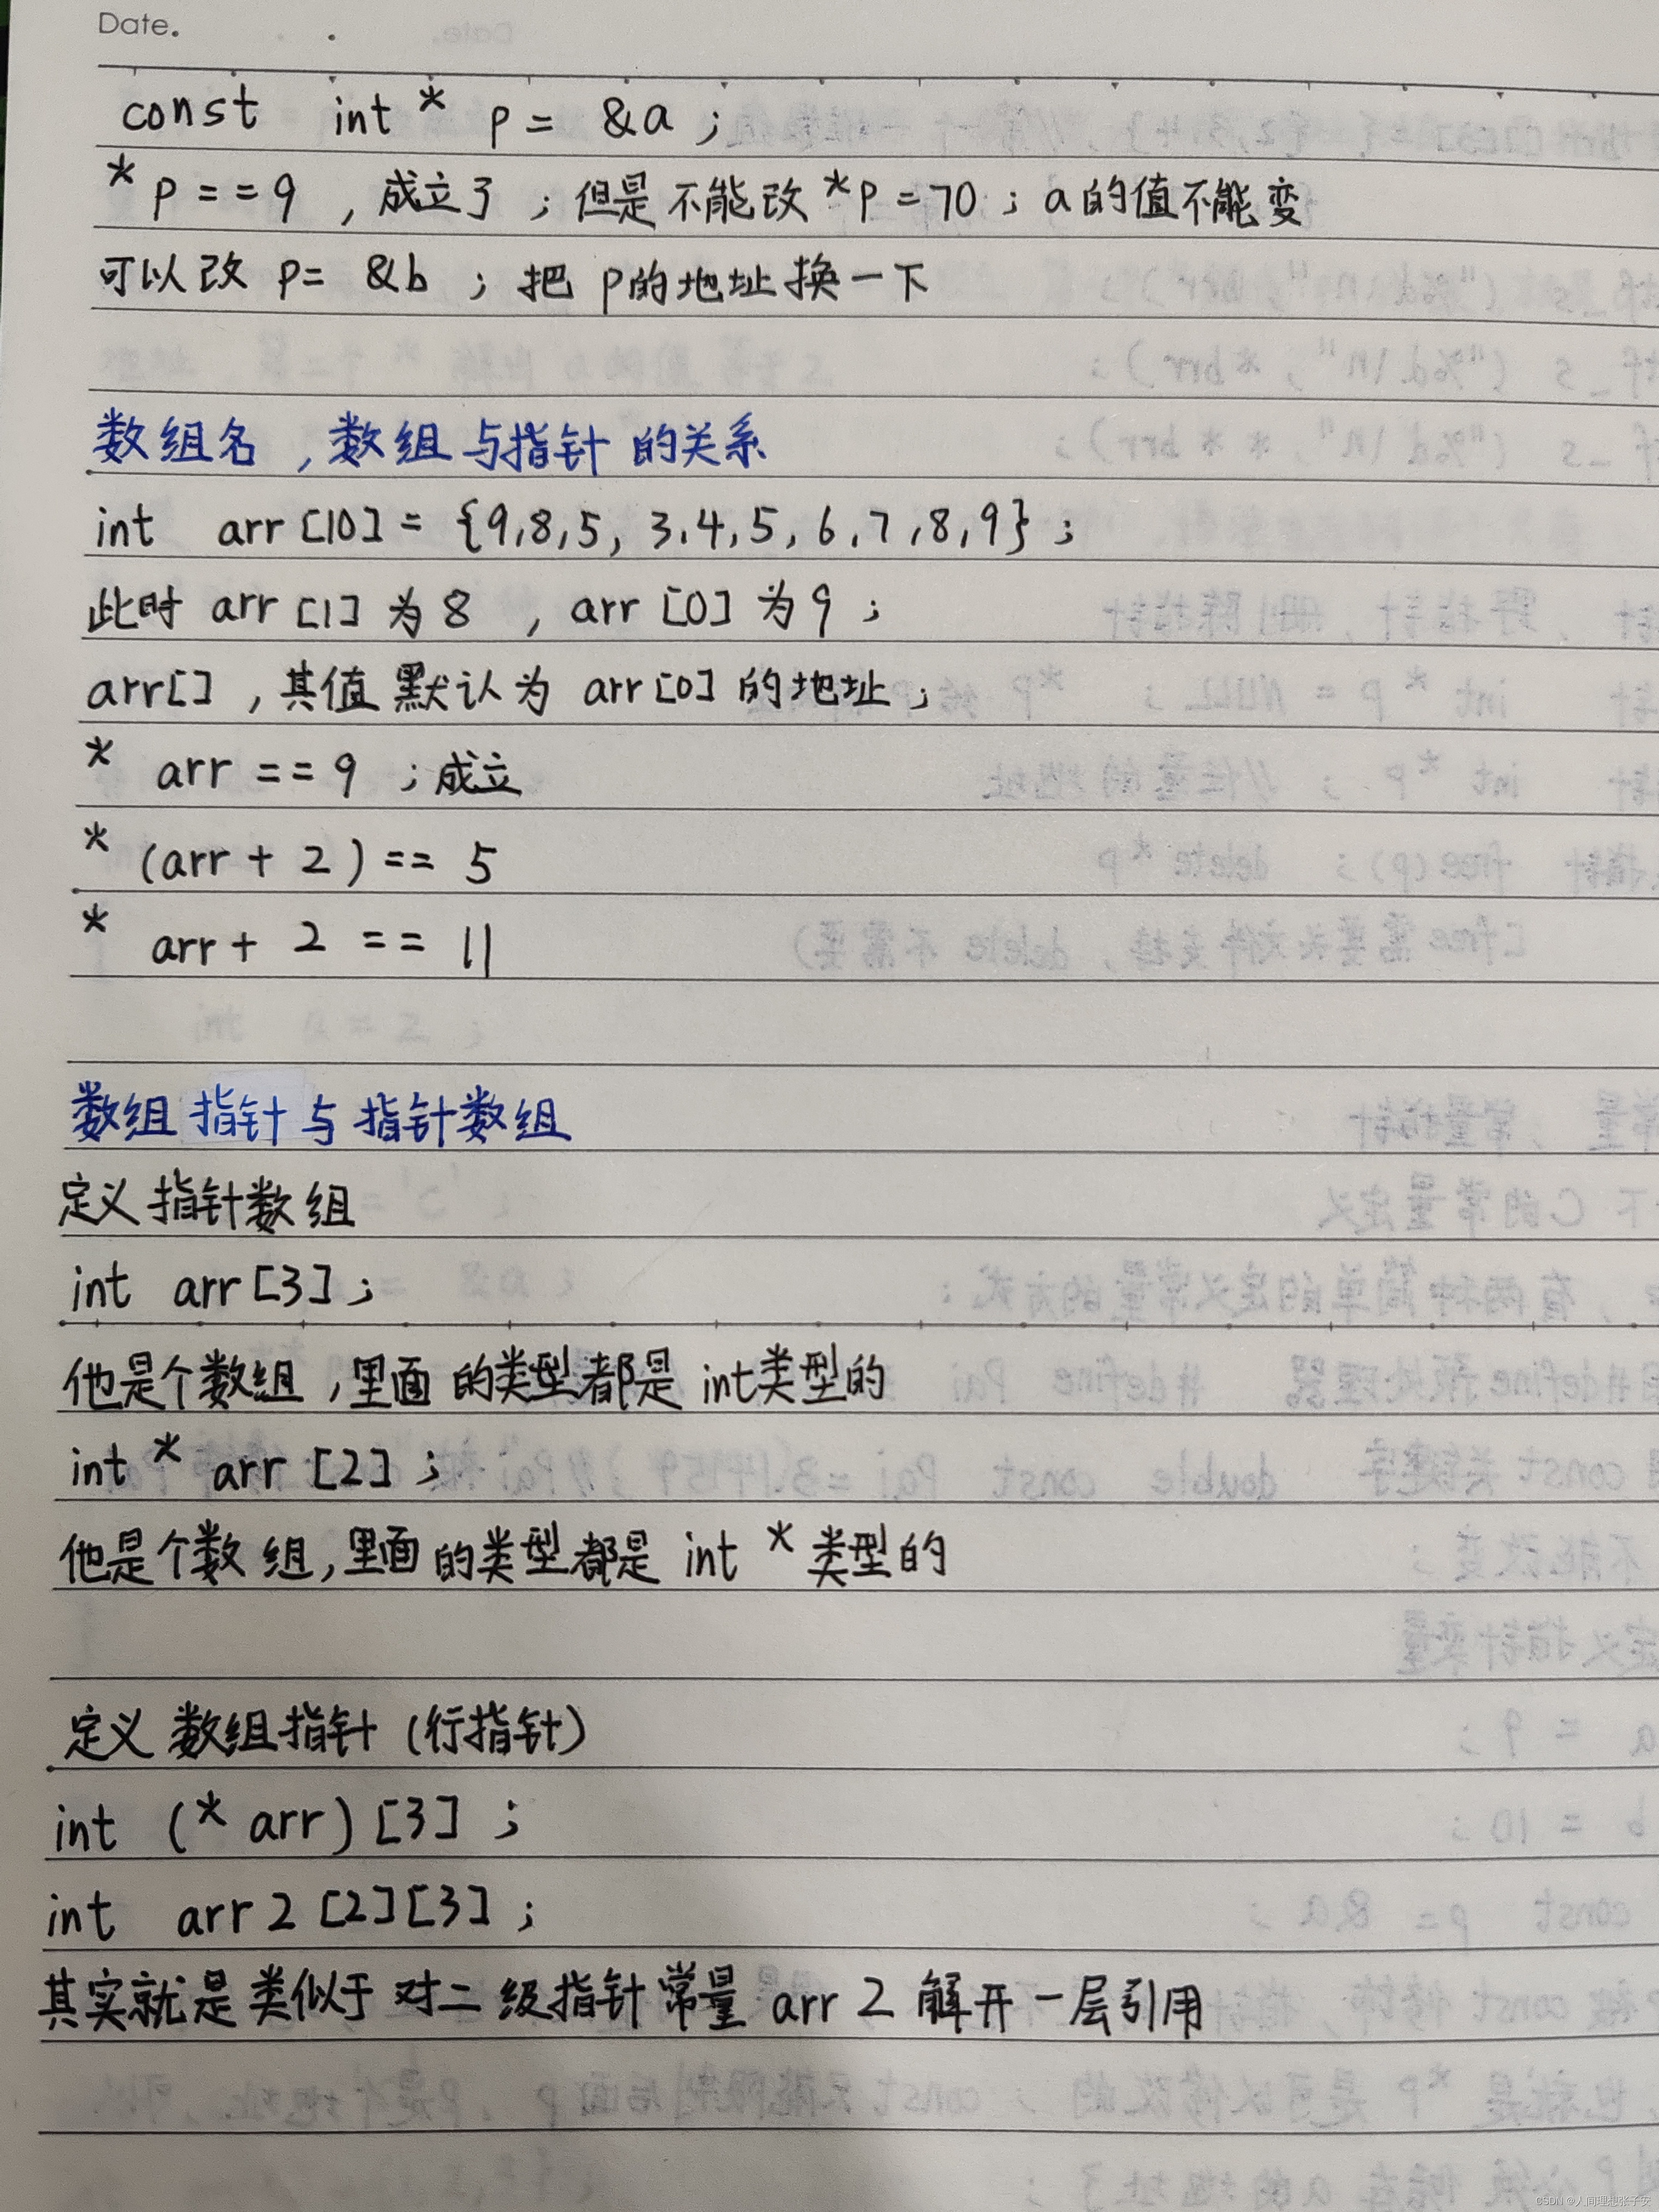 Date.
const int * p = &a ;
* p == 9 , 成立了 ; 但是不能改 *p = 70 ; a的值不能变
可以改 p= &b ; 把 p的地址换一下
数组名 , 数组与指针的关系
int arr [10] = {9,8,5, 3,4,5, 6,7,8,9} ;
此时 arr [1] 为 8 , arr [0] 为 9 ;
arr[] , 其值默认为 arr[0] 的地址 ;
* arr == 9 ; 成立
* (arr + 2) == 5
* arr + 2 == 11
数组指针与指针数组
定义指针数组
int arr[3] ;
他是个数组 , 里面的类型都是 int类型的
int * arr [2] ;
他是个数组, 里面的类型都是 int * 类型的
定义数组指针 (行指针)
int (* arr) [3] ;
int arr 2 [2][3] ;
其实就是类似于对二级指针常量 arr 2 解开一层引用
CSDN @人间理想张子安